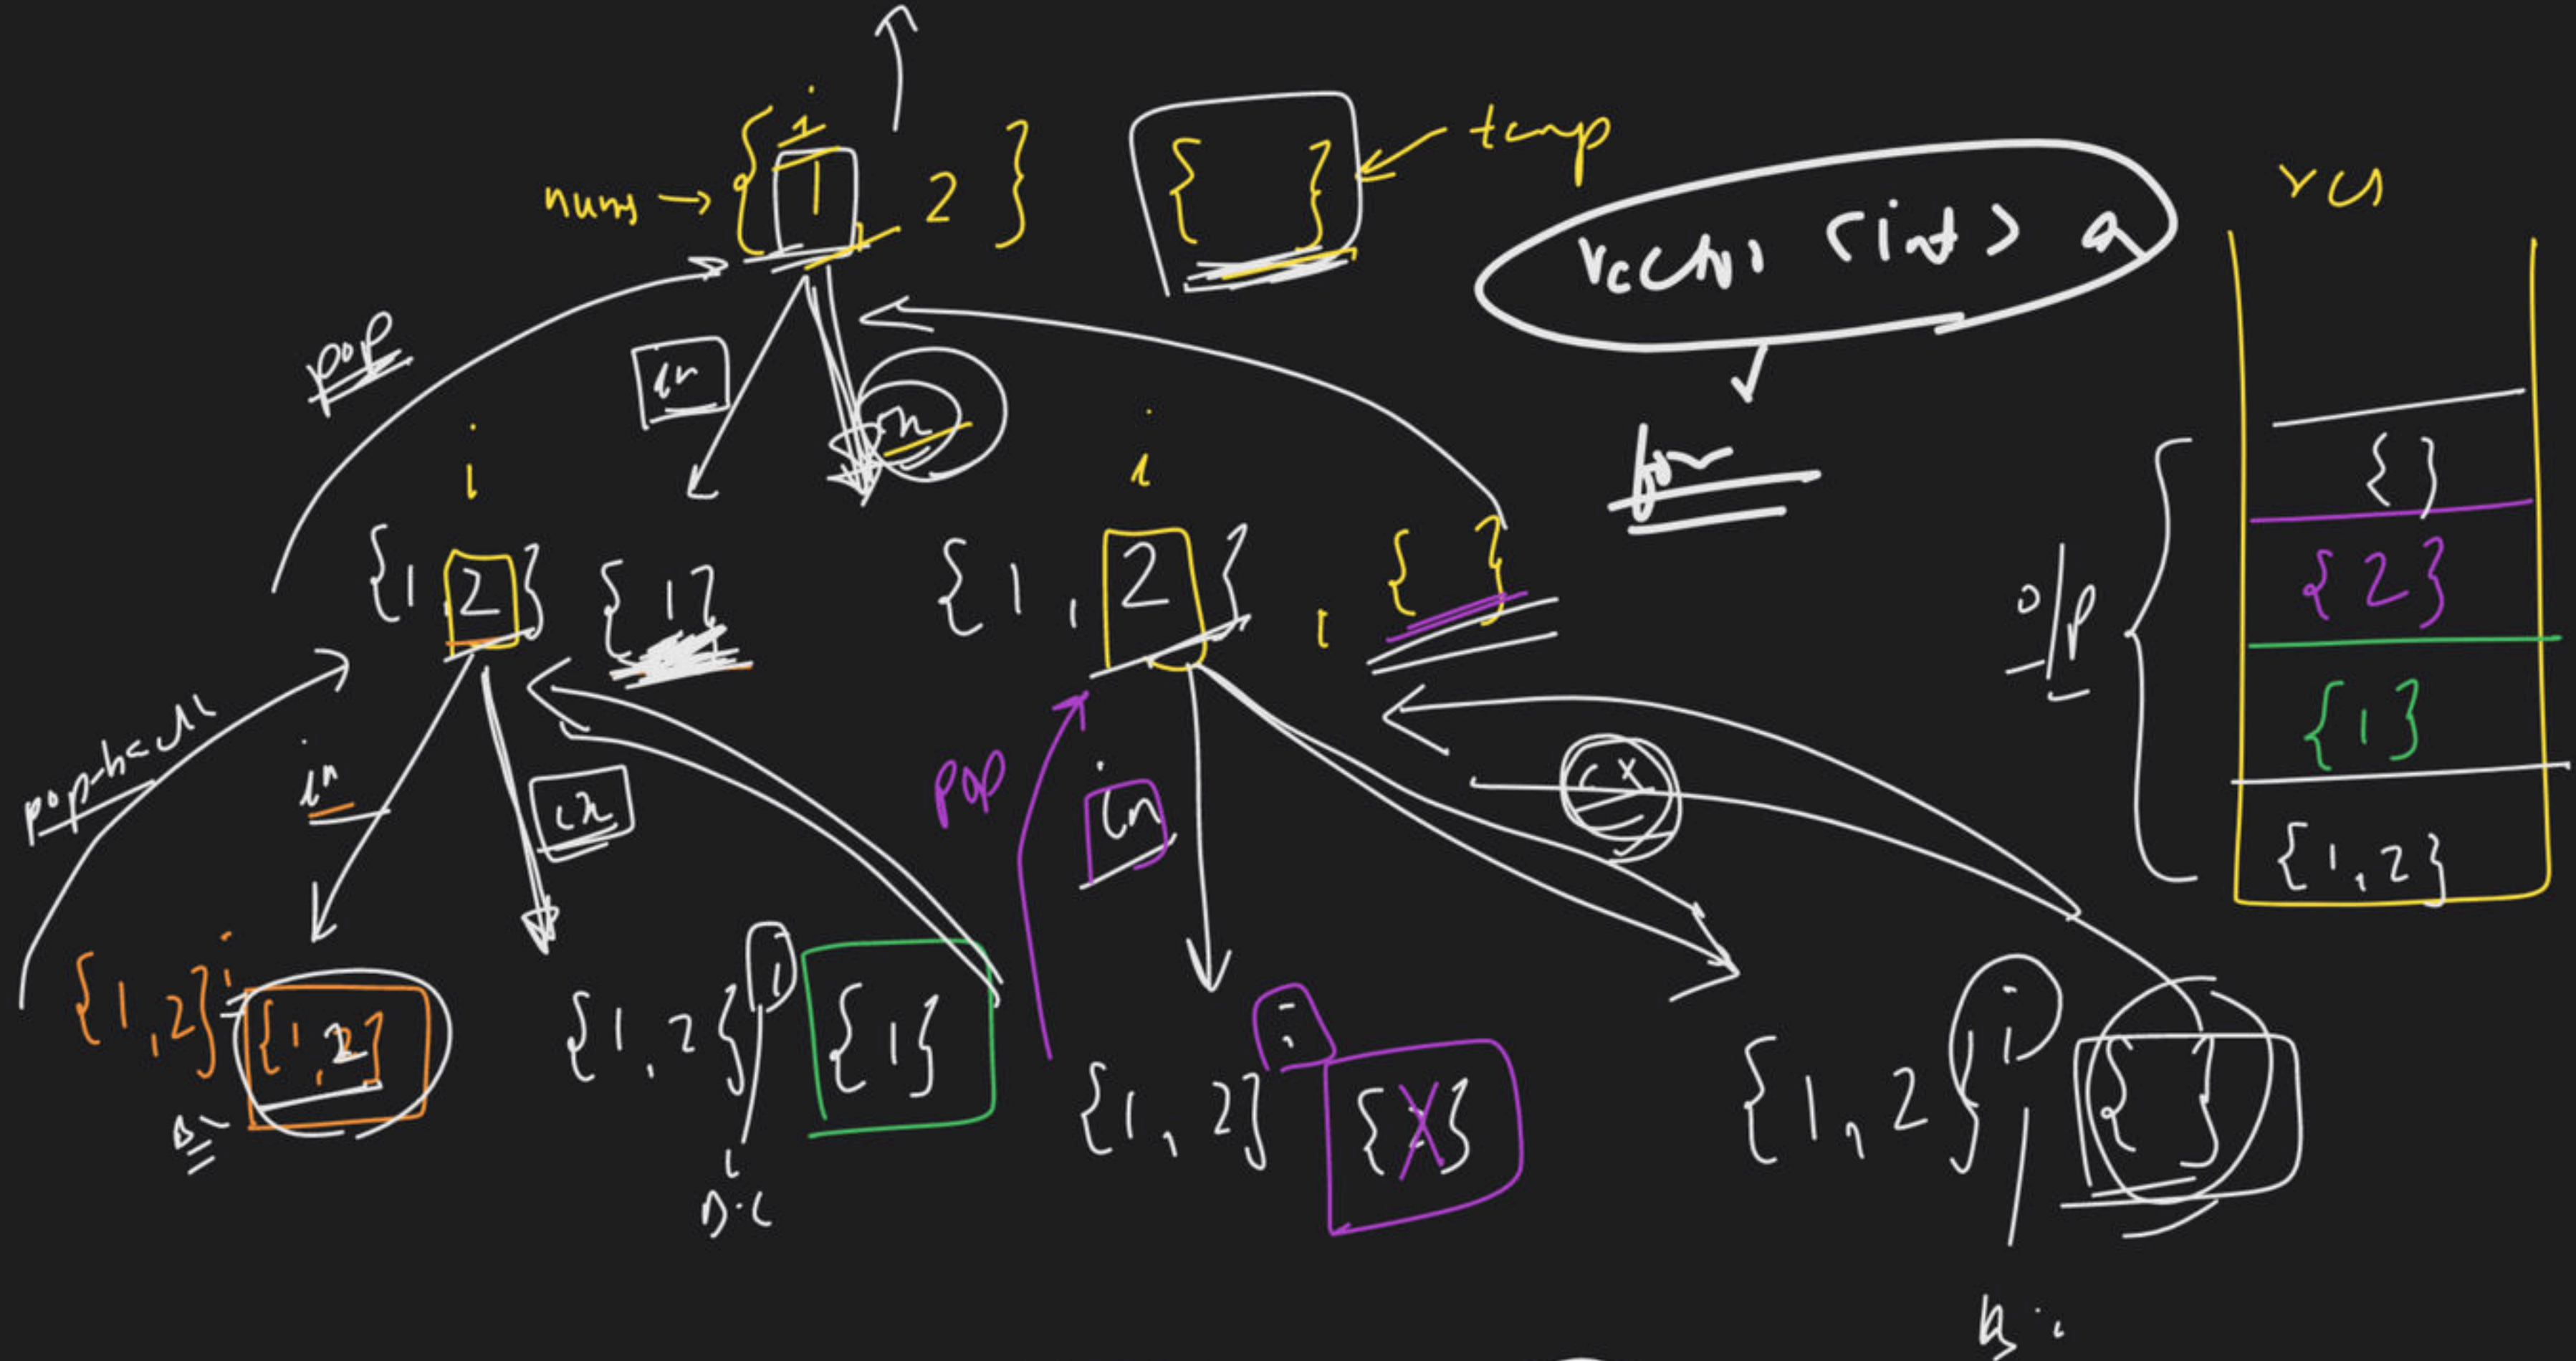 nums → { 1 2 }
{ } ← temp
res
vector <int> a
pop
in
ex
for
i
i
{1, 2} {1}
{1, 2} , { }
{ }
{2}
{1}
{1, 2}
o/p
pop-back
in
ex
pop
in
ex
{1, 2} i {1, 2}
{1, 2} i {1}
{1, 2} i
{1, 2} i { }
B.C
B.C